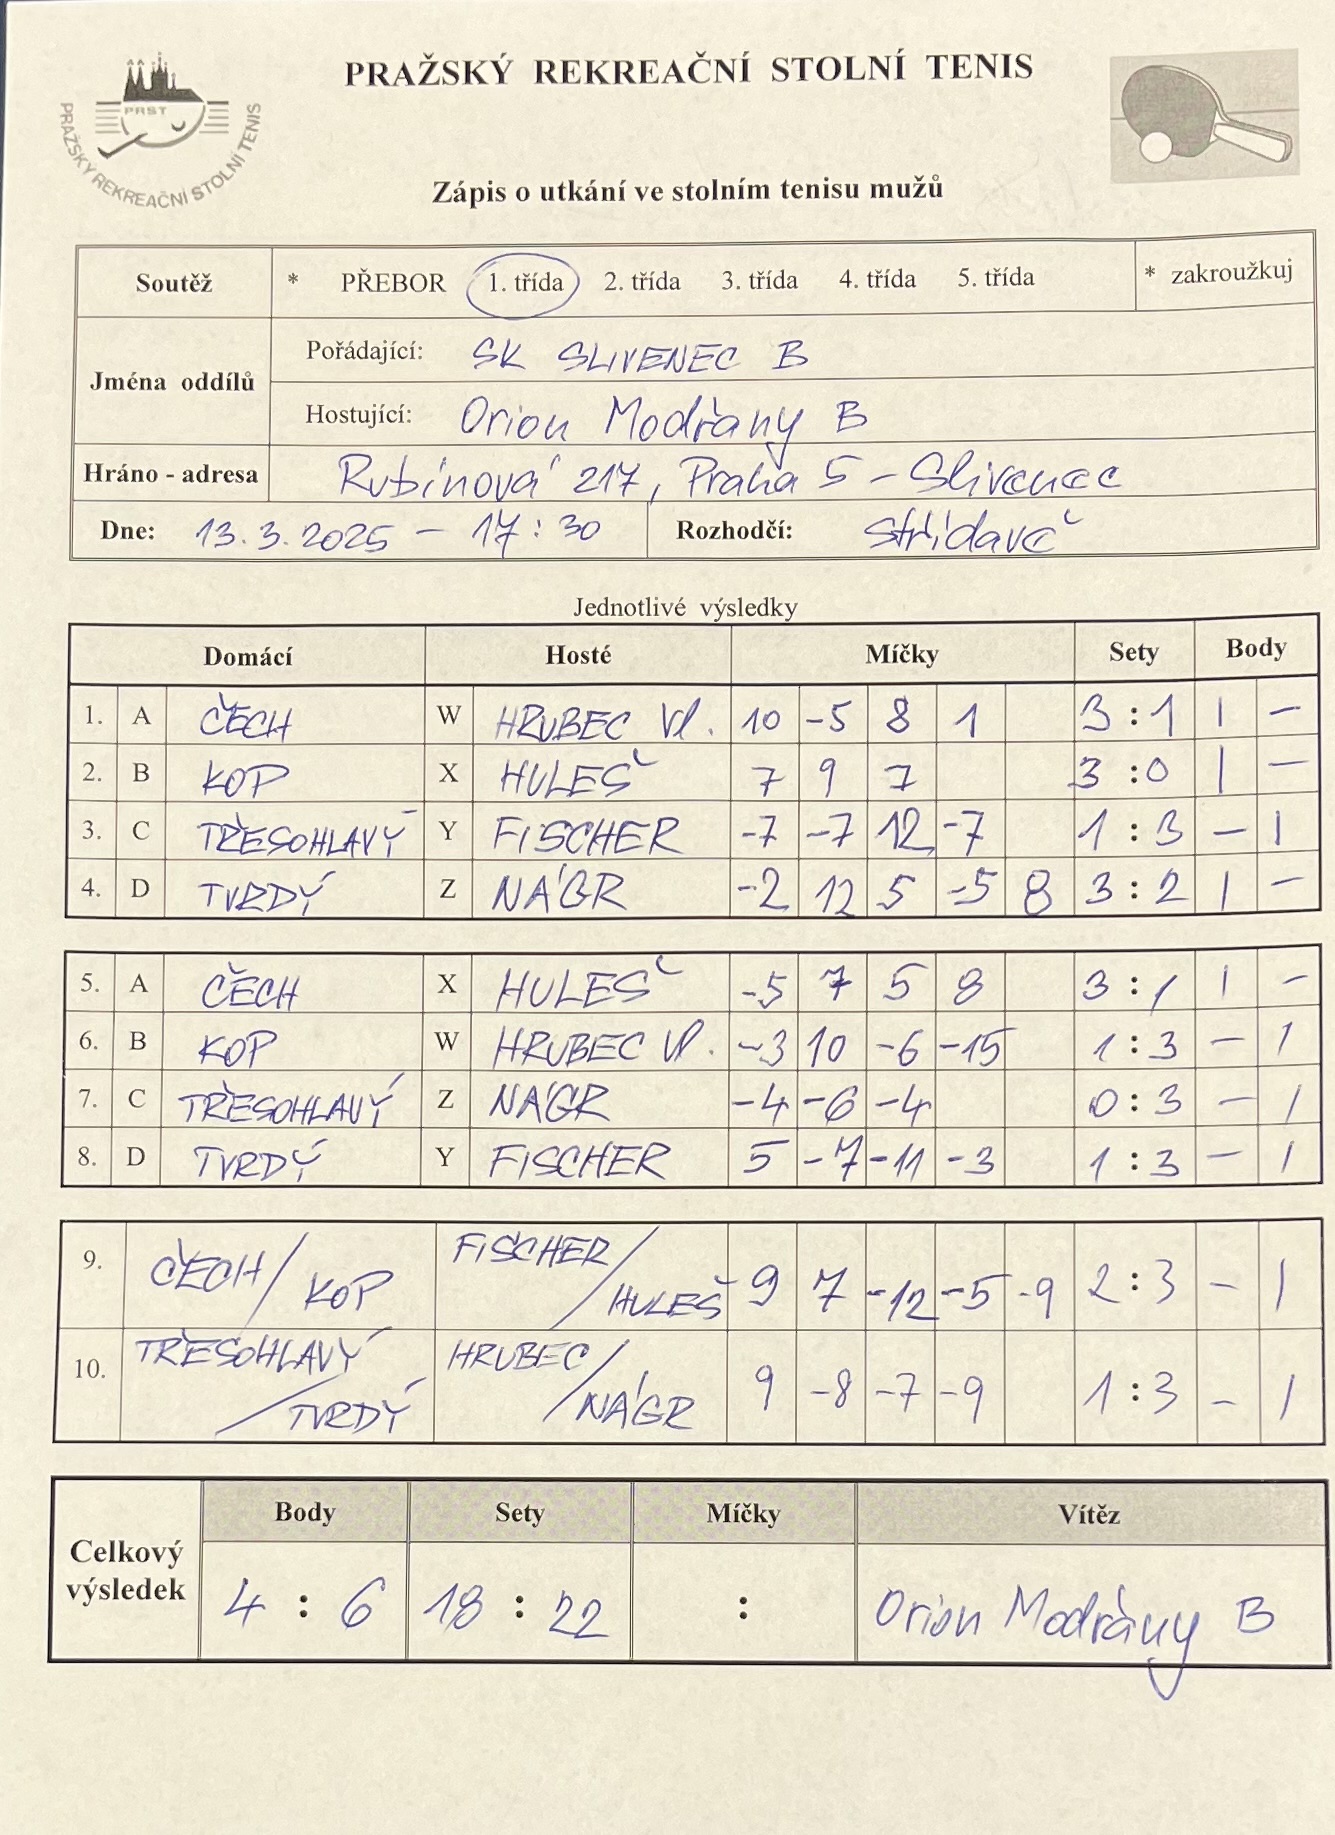 PRAŽSKÝ REKREAČNÍ STOLNÍ TENIS
PRST
PRAŽSKÝ REKREAČNÍ STOLNÍ TENIS
Zápis o utkání ve stolním tenisu mužů
Soutěž * PŘEBOR 1. třída 2. třída 3. třída 4. třída 5. třída * zakroužkuj
Jména oddílů
Pořádající: SK SLIVENEC B
Hostující: Orion Modřany B
Hráno - adresa Rubínová 217, Praha 5 - Slivenec
Dne: 13.3.2025 - 17:30 Rozhodčí: střídavě
Jednotlivé výsledky
Domácí Hosté Míčky Sety Body
1. A ČECH W HRUBEC Vl. 10 -5 8 1 3:1 1 -
2. B KOP X HULEŠ 7 9 7 3:0 1 -
3. C TŘESOHLAVÝ Y FISCHER -7 -7 12 -7 1:3 - 1
4. D TVRDÝ Z NÁGR -2 12 5 -5 8 3:2 1 -
5. A ČECH X HULEŠ -5 7 5 8 3:1 1 -
6. B KOP W HRUBEC Vl. -3 10 -6 -15 1:3 - 1
7. C TŘESOHLAVÝ Z NÁGR -4 -6 -4 0:3 - 1
8. D TVRDÝ Y FISCHER 5 -7 -11 -3 1:3 - 1
9. ČECH/KOP FISCHER/HULEŠ 9 7 -12 -5 -9 2:3 - 1
10. TŘESOHLAVÝ/TVRDÝ HRUBEC/NÁGR 9 -8 -7 -9 1:3 - 1
Celkový výsledek
Body Sety Míčky Vítěz
4 : 6 18 : 22 : Orion Modřany B